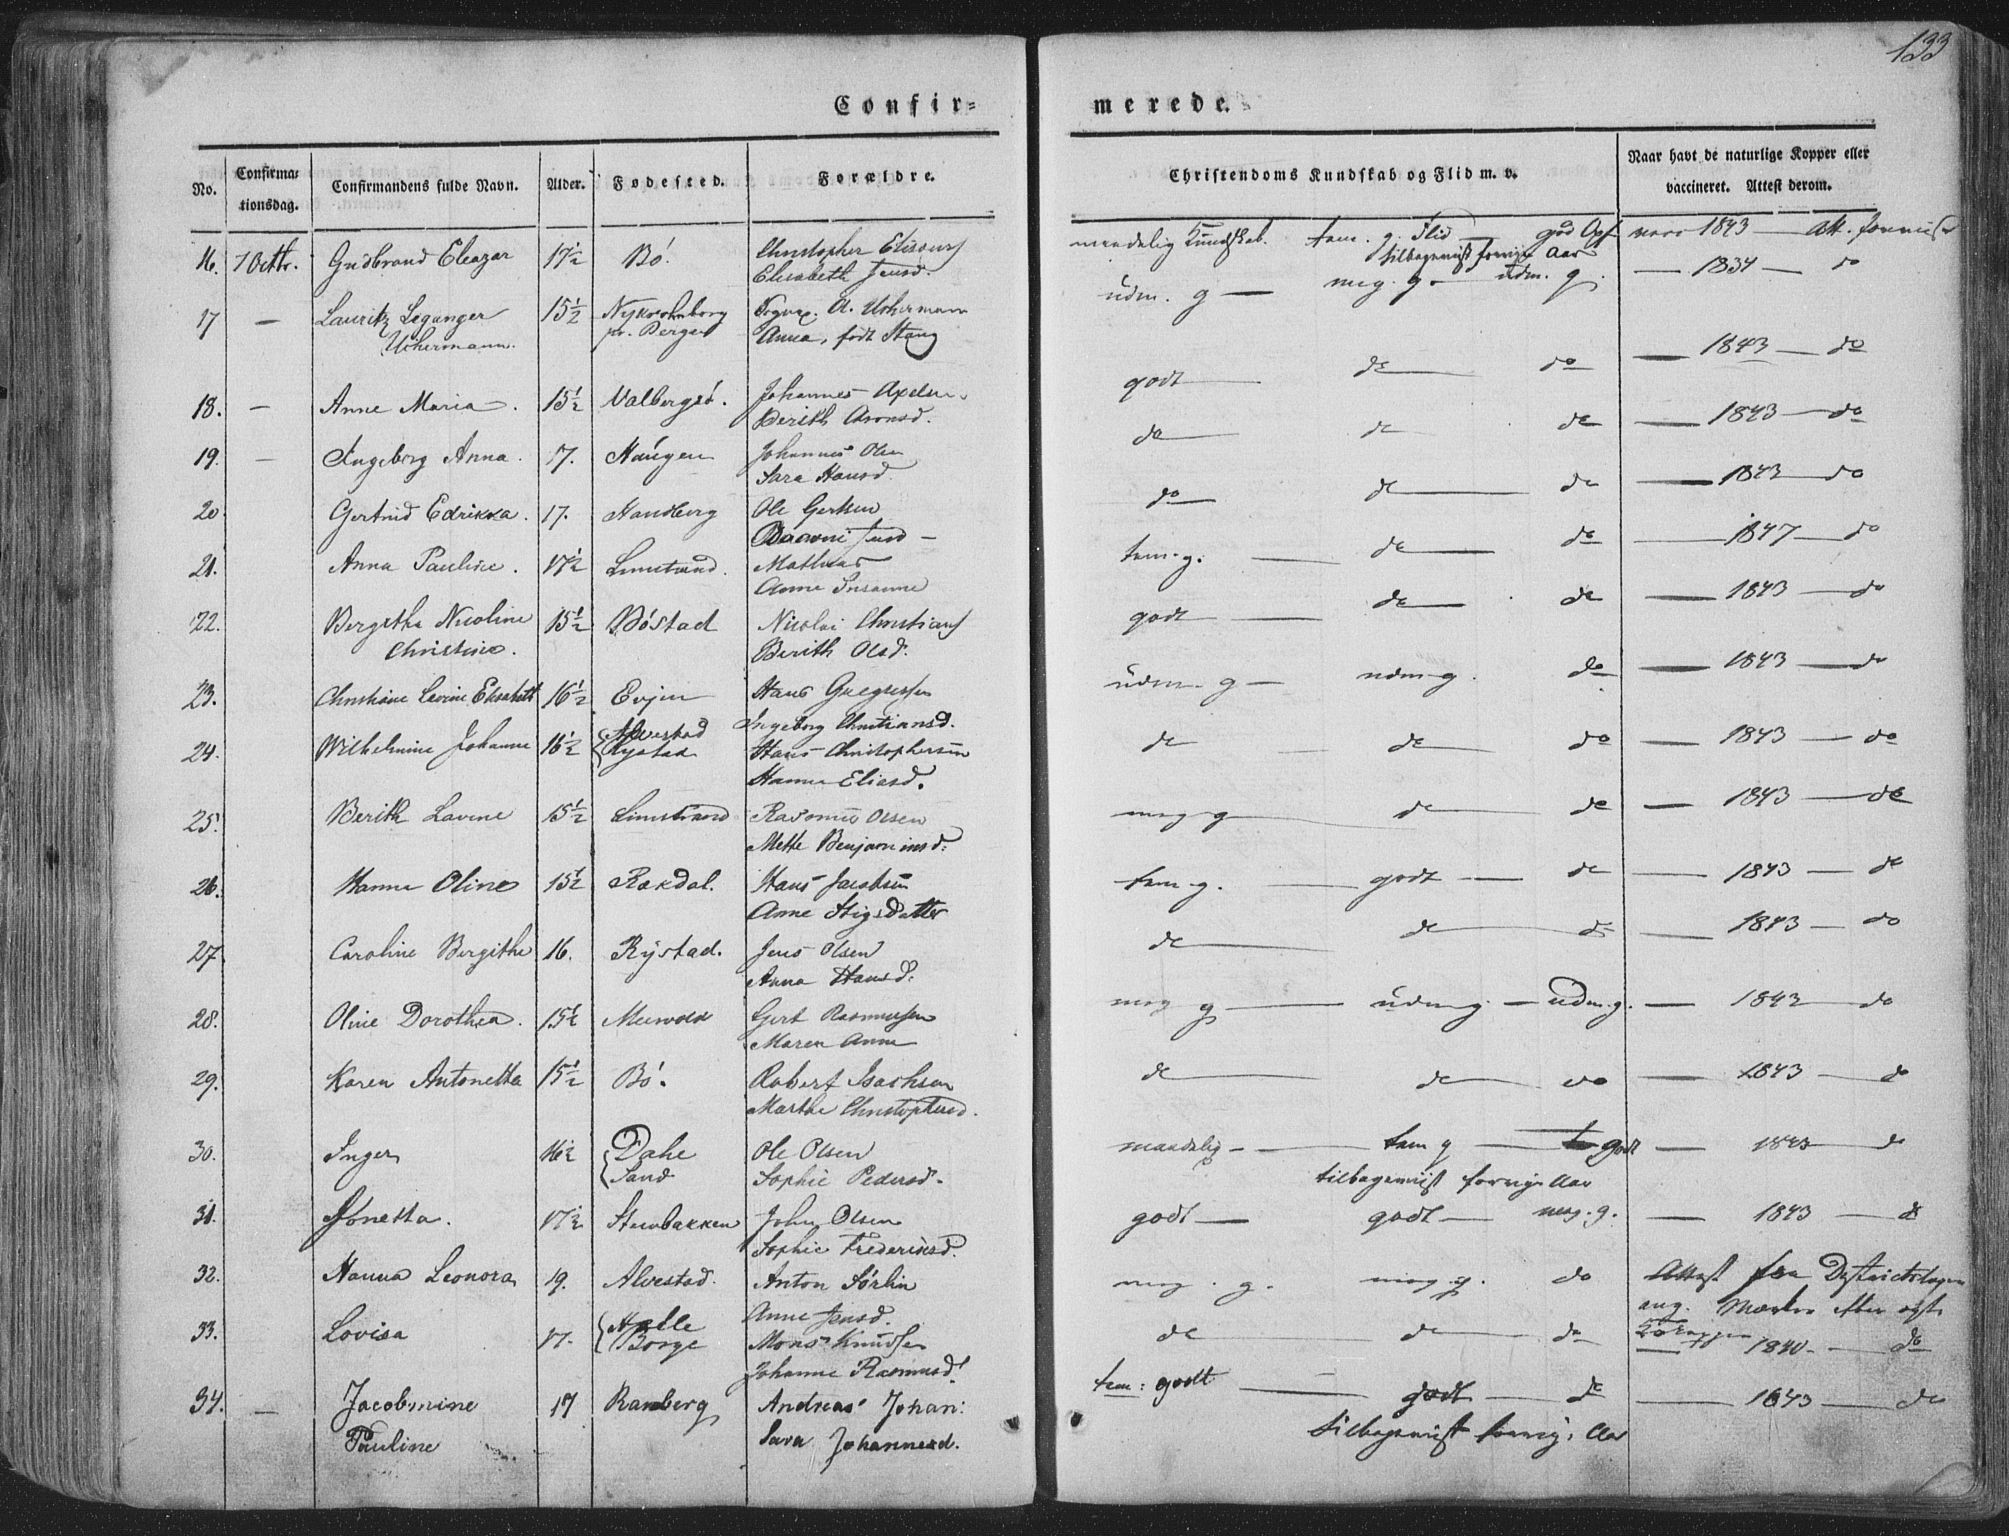 133
Confir=
merede.
No.
Confirma=
tionsdag.
Confirmandens fulde Navn.
Alder.
Fødested.
Forældre.
Christendoms Kundskab og Flid m. v.
Naar havt de naturlige Kopper eller
vaccineret. Attest derom.
16. 7 Octbr. Gudbrand Eleazar 17½ Bö. Christopher
Elisabeth Jensd.
maadelig Kundskab. tem. g. Flid god Opf. vacc 1843 Att. foreviist
tilbageviist forrige Aar
17 — Lauritz Leganger 15½
Uchermann. pr. Bergen
A. Uchermann
Anna, født Stang
udm. g — meg. g — udm. g. — 1834 — do
18. — Anne Maria. 15½ Valbergsö. Johannes Axelsen
Berith Aronsd.
godt — do do — 1843 — do
19. — Ingeborg Anna. 17. Haugen Johannes Olsen
Sara Hansd.
do — do do — 1843 — do
20 Gertrud Edrikka. 17. Handberg Ole
Jensd —
do — do — do — 1843 — do
21. Anna Pauline. 17½ Limstrand. Mathias
Anne Susanne
tem. g. — do — do — 1847 — do
22. Bergitha Nicoline 15½ Böstad Nicolai Christians
Christine. Berith Olsd.
godt — do — do — 1843 — do
23. Christiane Lovine Elisabeth 16½ Evjen Hans Gregersen
Ingeborg Christiansd.
udm. g — udm. g. do — 1843 — do
24. Wilhelmine Johanne 16½ Alvestad
Rystad Hans Christophersen
Hanna Eliasd.
do do do — 1843 — do
25. Berith Lavine 15½ Limstrand Rasmus Olsen
Mette Benjaminsd:
meg g do do — 1843 — do
26. Hanna Oline 15½ Rakdal. Hans Jacobsen
Anne Stigsdatter
tem. g. — godt — do — 1843 — do
27. Caroline Bergithe 16. Rystad. Jens Olsen
Anna Hansd:
do — do do — 1843 — do
28. Oline Dorothea. 15½ Gert Rasmussen
Maren Anne
meg g — udm. g. — udm. g. — 1843 — do
29. Karen Antonetta 15½ Bö. Robert Isachsen
Marthe Christophersd.
do — do do — 1843 — do
30. Inger 16½ Dahl
Sand Ole Olsen
Sophie Pedersd.
maadelig — tem g — godt — 1843 — do
tilbageviist forrige Aar
31. Jonetta. 17½ Steenbakken John Olsen
Sophie Frederiksd.
godt — godt — meg. g. — 1843 — do
32. Hanna Leonora 19. Alvestad. Anton Sörlin
Anne Jensd.
meg. g. meg. g. do Attest fra Districtslægen
ang. Mærker efter
33. Lovisa 17. Halle
Borge Mons Knudsen
Johanne Rasmusd.
do — do — do — 1840 — do
34. — Jacobmine 17 Ramberg Andreas Johan:
Pauline Sara Johannesd.
tem: godt — godt — do — 1843 — do
tilbageviist forrig: Aar